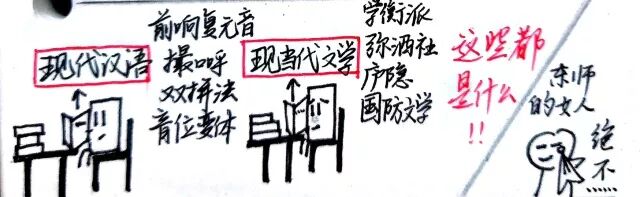 现代汉语
前响复元音
撮呼
双拼法
音位变体
现当代文学
学衡派
弥洒社
庐隐
国防文学
这些都
是什么
!!
东师
的女人
绝
不……